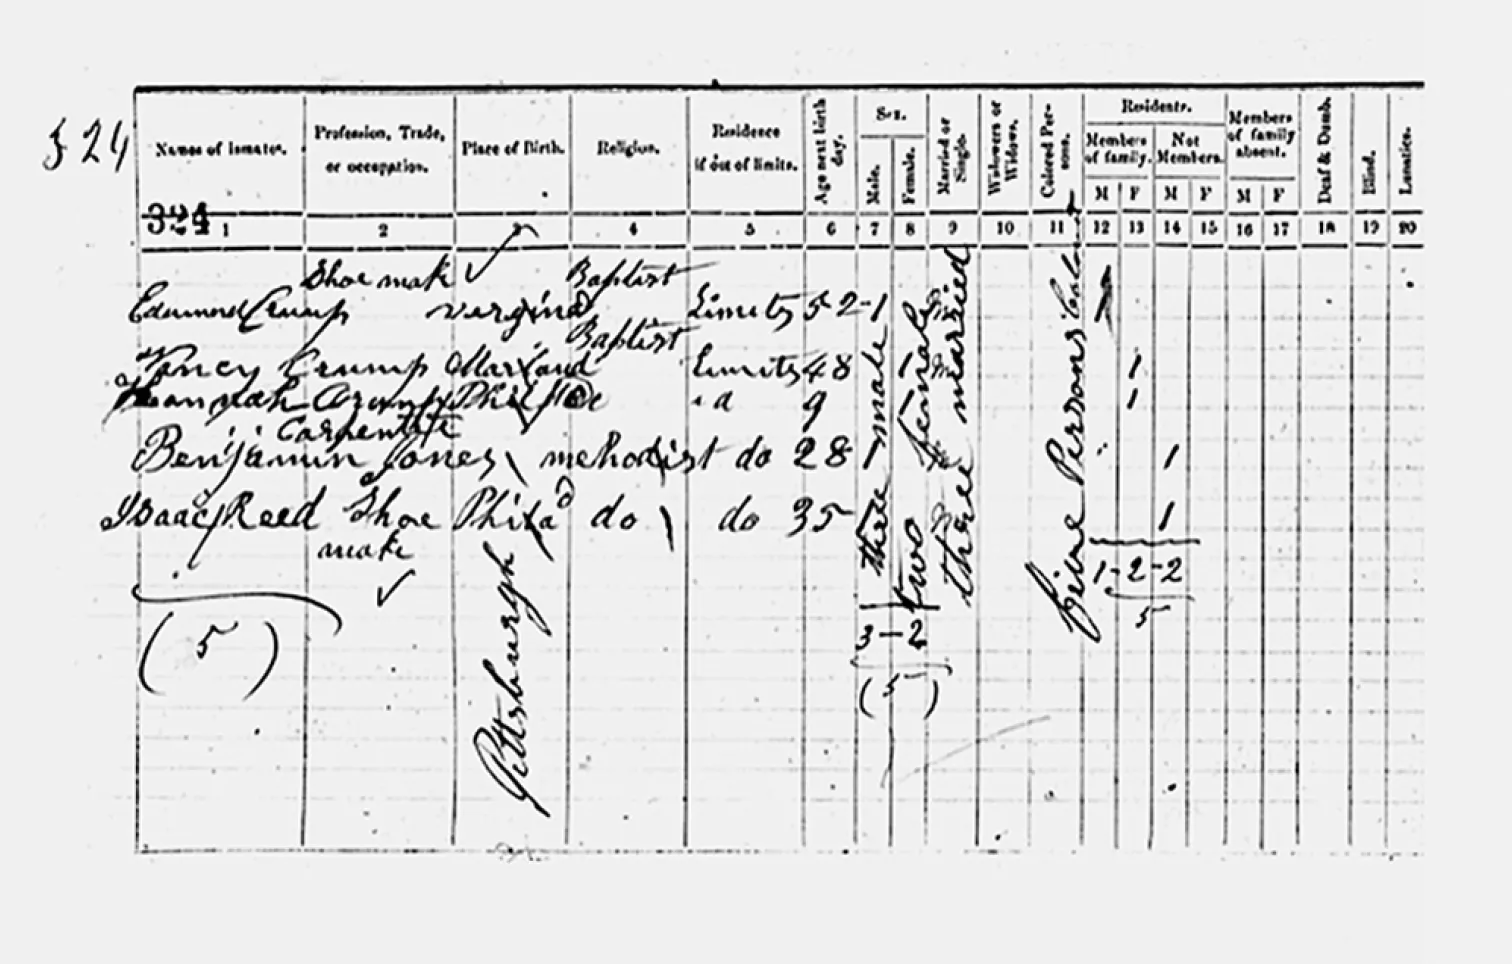 524
Names of Inmates. Profession, Trade, or occupation. Place of Birth. Religion. Residence if out of limits. Age next birth day. Sex. Male. Female. Married or Single. Widowers or Widows. Colored Persons. Residents. Members of family. M F Not Members. M F Members of family absent. M F Deaf & Dumb. Blind. Lunatics.
324
1 2 3 4 5 6 7 8 9 10 11 12 13 14 15 16 17 18 19 20
Shoe mak Baptist
Edumond Crump virgina Limits 52 - 1 1
Baptist
Nancy Crump Limits 48 1 1
Hannah Crump 9 1 1
Carpenter
Benjamin Jones methodist do 28 1 1
Isaac Reed Shoe Phila do do 35 1
make
three male
two female
three married
Five Persons
1 - 2 - 2
5
3 - 2
(5)
(5)
Pittsburgh